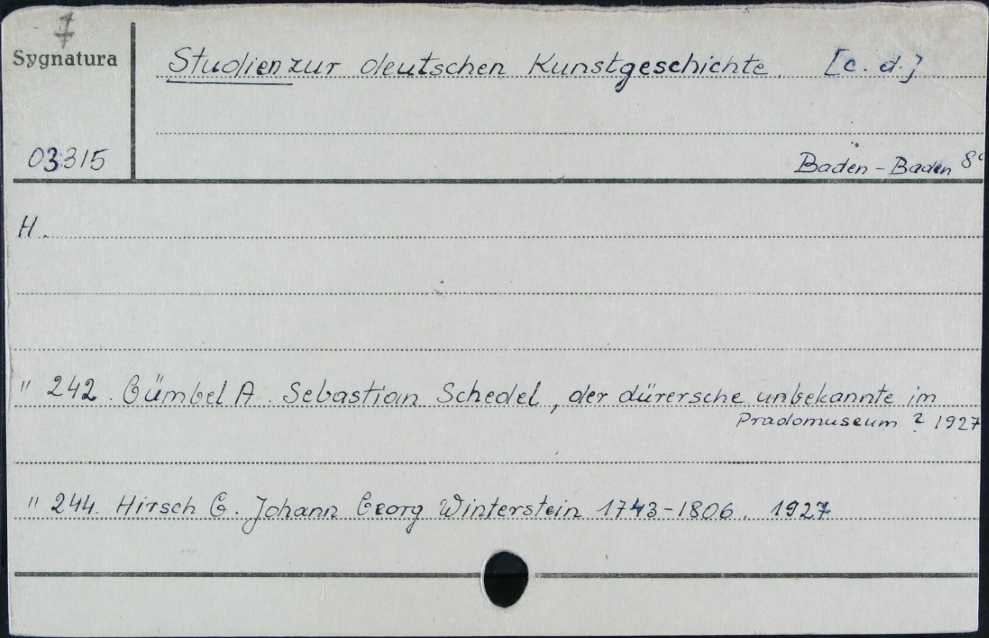 7
Sygnatura
Studien zur deutschen Kunstgeschichte. [c. d.]
03315
Baden-Baden 8°
H.
" 242. Gümbel A. Sebastian Schedel, der dürersche unbekannte im
Pradomuseum ? 1927
" 244. Hirsch G. Johann Georg Winterstein 1743-1806. 1927